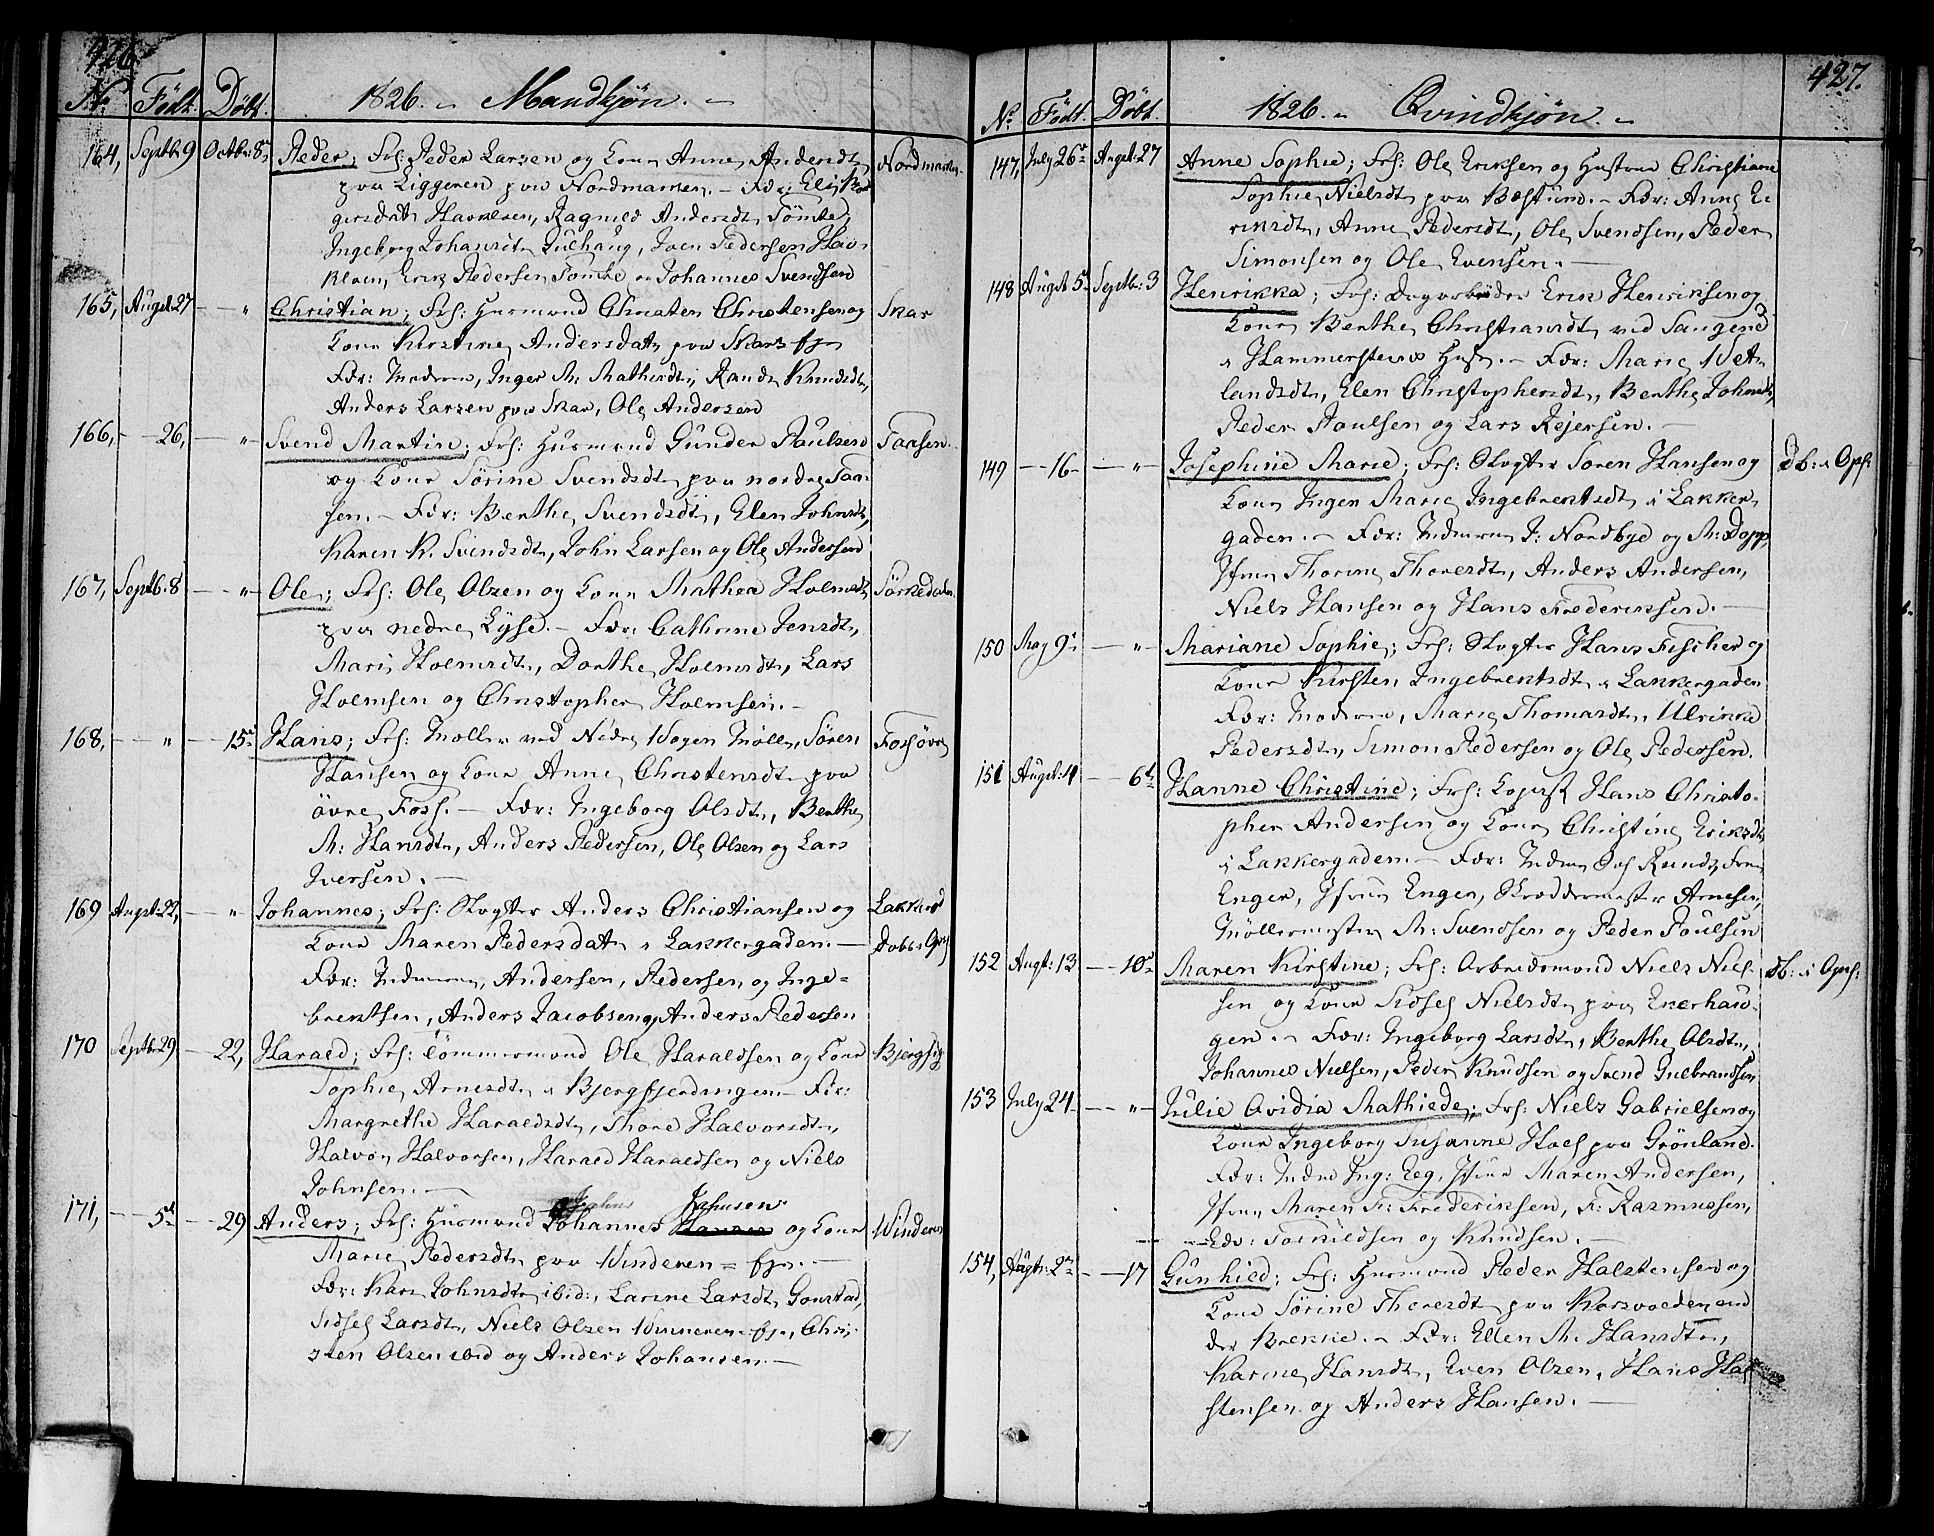 426.
No Födt. Döbt. 1826. - Mandkjön. -
164, Septb: 9 Octbr: 8de Peder; Frs: Peder Larsen og Kone Anne Andersdt Nordmarken.
paa Liggeren paa Nordmarken. - Fær: Eli
gersdat Havnelsen, Ragnild Andersdt Tömte,
Ingeborg Johansdt Julhaug, Iver Pedersen Hav-
kleven, Erik Pedersen Tömte og Johannes Svendsen
165, Augst 27 - - " Christian; Frs: Husmand Christen Christensen og Skar
Kone Kirstine Andersdat paa Skars eje
Fær: Moderen, Inger M. Mathisdt, Rande Knudsdt,
Anders Larsen paa Skar, Ole Andersen
166, - 26, - " - Svend Martin; Frs: Husmand Gunder Paulsen Taasen.
og Kone Sörine Svendsdt paa nordre Taa-
sen. - Fær: Berthe Svendsdt, Elen Johnsdt,
Karen K. Svendsdt, John Larsen og Ole Andersen
167, Septb. 8 - " - Ole; Frs: Ole Olsen og Kone Mathea Holmsdt Sörkedalen.
paa nedre Lyse. - Fær: Cathrine Jensdt,
Mari Holmsdt, Dorthe Holmsdt, Lars
Holmsen og Christopher Holmsen. -
168, - " - 15de Hans; Frs: Möller ved Nedre Vogen Mölle, Sören Fossövre
Hansen og Kone Anne Christensdt paa
övre Foss. - Fær: Ingeborg Olsdt, Berthe
M: Hansdt, Anders Pedersen, Ole Olsen og Lars
Iversen. -
169 Augst: 22, - " Johannes; Frs: Slagter Anders Christiansen og Lakkergd
Kone Maren Pedersdat i Lakkergaden. - Döbt i Opf
Fær: Andersen, Pedersen, og Inge-
brektsen, Anders Jacobsen og Anders Pedersen
170 Septbr 29 - 22, Harald; Frs: Tömmermand Ole Haraldsen og Kone Bjergfjg
Sophie Arnesdt i Bjergfjerdingen. - Fær:
Margrethe Haraldsdt, Thore Halvorsdt,
Halvor Halvorsen, Harald Haraldsen og Niels
Johnsen. -
Johnsen
171, - 5te - 29 Anders; Frs: Husmand Johannes Hansen og Kone Winderen
Marie Pedersdt paa Winderen - eje. -
Fær: Kari Johnsdt ibid:, Larine Larsdt Gonstad,
Sidsel Larsdt, Niels Olsen Winneren - eje, Chri-
sten Olsen ibid og Anders Johansen. -
427.
No. Födt. Döbt. 1826. - Qvindkjön. -
147, July 26de Augst: 27 Anne Sophie; Frs: Ole Eriksen og Hustrue Christiane
Sophie Nielsdt paa Bæstum. - Fær: Anne E-
riksdt, Anne Pedersdt, Ole Svendsen, Peder
Simonsen og Ole Evensen. -
148 Augst 5te Septbr: 3 Henrikka; Frs: Dagarbeider Erik Henriksen og
Kone Berthe Christiansdt ved Saugene
i Hammersteens Huse. - Fær: Marie Vet-
landsdt, Elen Christophersdt, Berthe Johnsdt,
Peder Paulsen og Lars Rejersen. -
149 - 16 - - " - Josephine Marie; Frs: Slagter Sören Hansen og Db: i Opf:
Kone Inger Marie Ingebrektsdt i Lakker-
gaden. - Fær: J: Nordbye og M: Dopp,
Jfru Thorine Thoresdt, Anders Andersen,
Niels Hansen og Hans Frederiksen. -
150 May 9de - " - Mariane Sophie; Frs: Slagter Hans Fischer og
Kone Kirsten Ingebrektsdt i Lakkergaden
Fær: Moderen, Marie Thomasdt, Ulrikke
Pedersdt, Simon Pedersen og Ole Pedersen.
151 Augst: 4 - 6te Hanne Christine; Frs: Kopist Hans Christo-
pher Andersen og Kone Christine Eriksdt
i Lakkergaden. - Fær: Runds, Frue
Enger, Jfru Enger, Skræddermester Arnesen,
Möllermester M: Svendsen og Peder Poulsen
152 Augt: 13 - 10de Maren Kirstine; Frs: Arbeidsmand Niels Niel- db: i Opf:
sen og Kone Sidsel Nielsdt paa Enerhau-
gen. - Fær: Ingeborg Larsdt, Berthe Olsdt,
Johannes Nielsen, Peder Knudsen og Svend Gulbrandsen
153 July 24 - " - Julie Ovidia Mathiede; Frs: Niels Gabrielsen og
Kone Ingeborg Susanne Hoel paa Grönland.
Fær: Ing: Eeg, Jfru Maren Andersen,
Jfru Maren F: Frederiksen, F. Rasmussen,
Edv: Torkildsen og Knudsen. -
154, Augt: 2den - 17 Gunhild; Frs: Husmand Peder Halstensen og
Kone Sörine Thoresdt paa Korsvolden un-
der Brekke. - Fær: Ellen M. Hansdt,
Karine Hansdt, Even Olsen, Hans Hal-
stensen og Anders Hansen. -